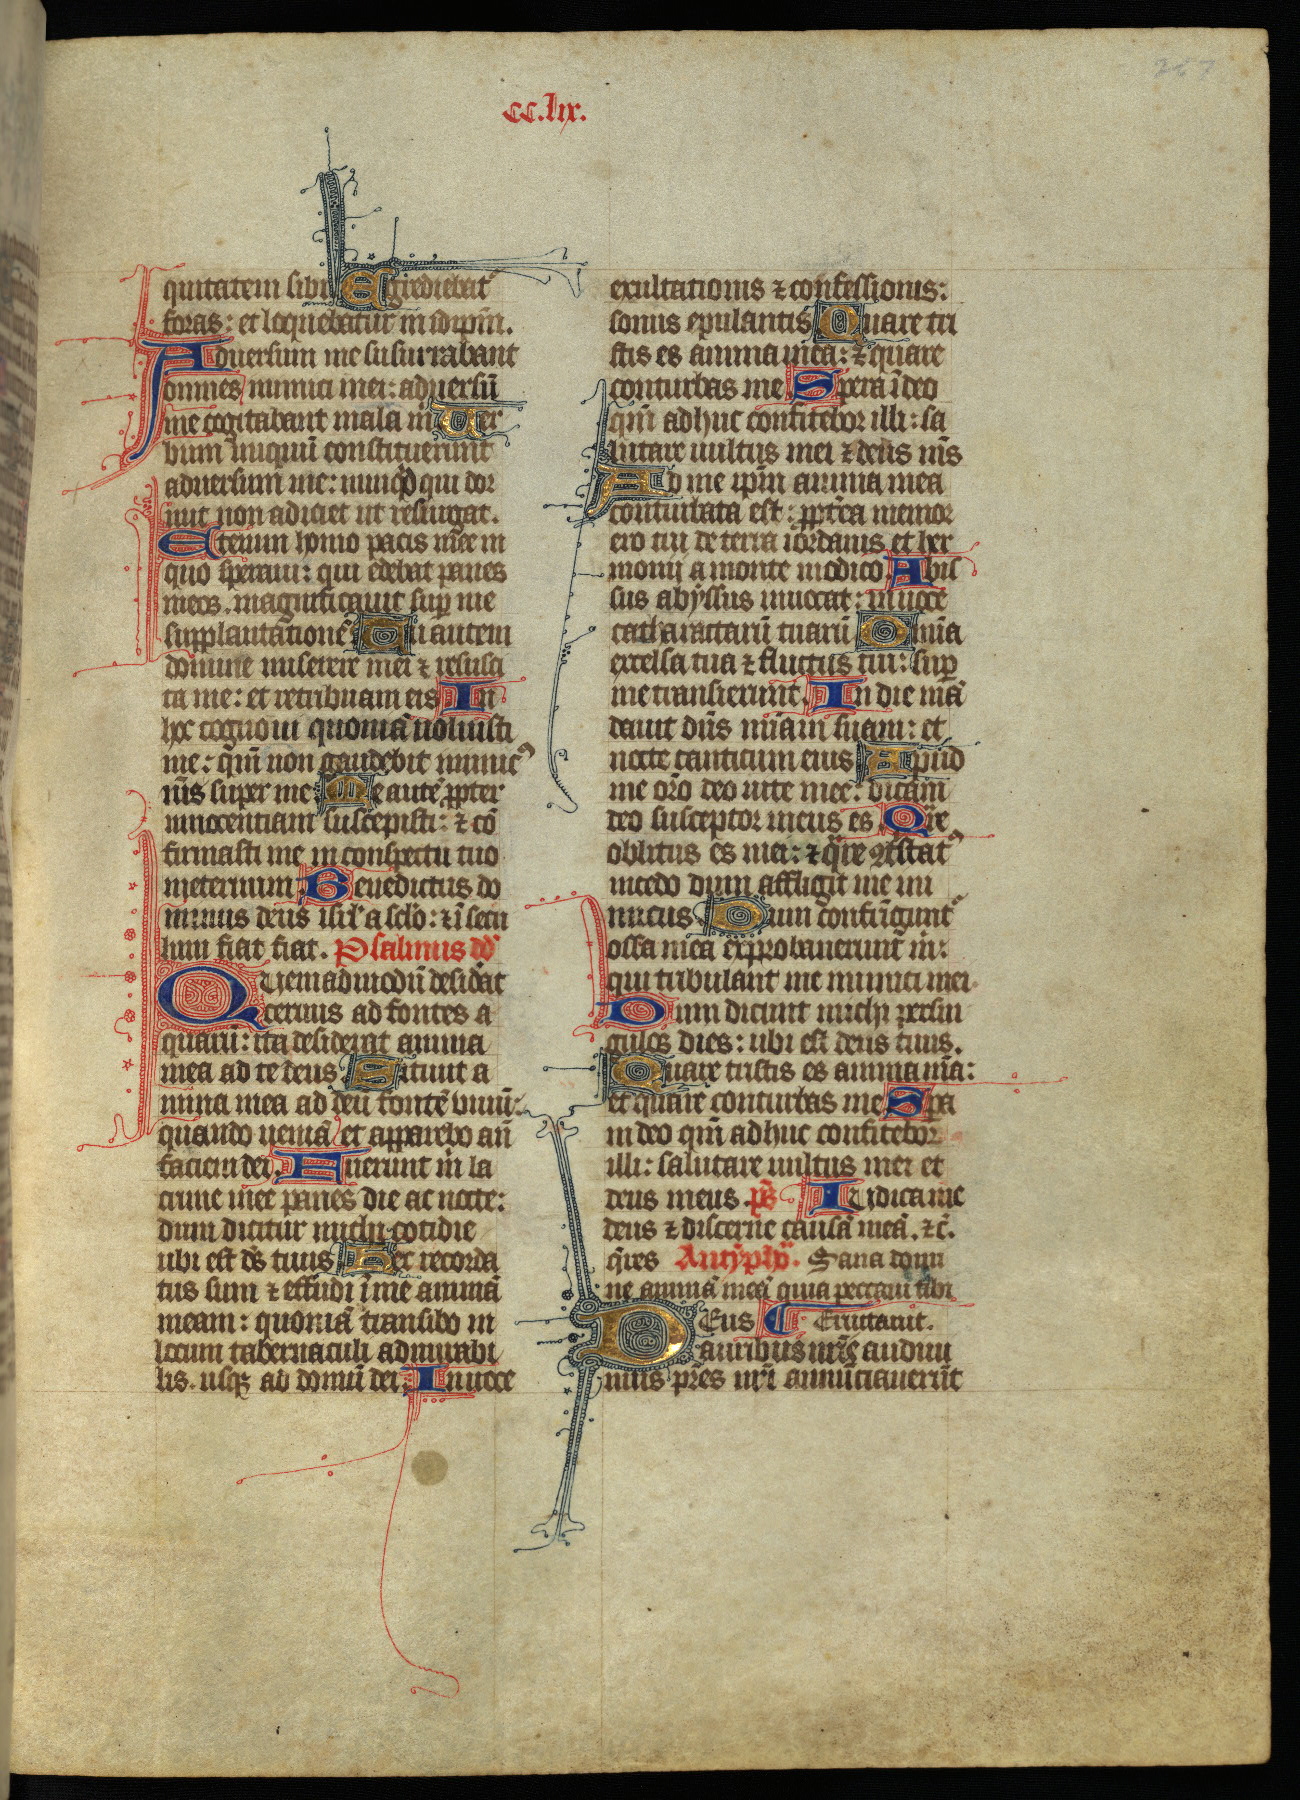 cc.lix.
quitatem sibi Egrediebat᷑
foras: et loquebatur in idip̄m.
Aduersum me susurrabant
omnes inimici mei: aduersū
me cogitabant mala m̄ Uer
bum iniquū constituerunt
aduersum me: nunq̄d qui dor
mit non adiciet ut resurgat.
Etenim homo pacis mee in
quo speraui: qui edebat panes
meos. magnificauit sup̄ me
supplantationē Tu autem
domine miserere mei ⁊ resusci
ta me: et retribuam eis In
hoc cognoui quoniā uoluisti
me: qm̄ non gaudebit inimicꝰ
meus super me Me autē ꝓpter
innocentiam suscepisti: ⁊ cō
firmasti me in conspectu tuo
ineternum Benedictus do
minus deus isrl' a sclo: ⁊ ī secu
lum fiat fiat. Psalmus dd
Quemadmodū desidat
ceruus ad fontes a
quarū: ita desiderat anima
mea ad te deus Sitiuit a
nima mea ad deū fontē viuū:
quando ueniā et apparebo an̄
faciem dei. Fuerunt m̄ la
crime mee panes die ac nocte:
dum dicitur michi cotidie
ubi est ds̄ tuus Hec recorda
tus sum ⁊ effudi ī me animā
meam: quoniā transibo in
locum tabernaculi admirabi
lis. usqꝫ ad domū dei. In uoce
exultationis ⁊ confessionis:
sonus epulantis Quare tri
stis es anima mea: ⁊ quare
conturbas me Spera ī deo
qm̄ adhuc confitebor illi: sa
lutare uultus mei ⁊ deus m̄s
Ad me ip̄m anima mea
conturbata est: ꝓpterea memor
ero tui de terra iordanis et her
monij a monte modico. Abis
sus abyssus inuocat: in uoce
catharactarū tuarū Omīa
excelsa tua ⁊ fluctus tui: sup̄
me transierunt. In die mā
dauit dn̄s mīam suam: et
nocte canticum eius Apud
me orō deo uite mee: dicam
deo susceptor meus es Qre
oblitus es mei: ⁊ qre ꝯtristatꝰ
incedo dum affligit me ini
micus Dum confrīgunt᷑
ossa mea exprobauerunt m̄:
qui tribulant me inimici mei.
Dum dicunt michi per sin
gulos dies: ubi est deus tuus.
Quare tristis es anima mea:
et quare conturbas me Spa
in deo qm̄ adhuc confitebor
illi: salutare uultus mei et
deus meus. ps̄ Iudica me
deus ⁊ discerne causā meā. ⁊c̄.
qres Antypho. Sana domi
ne animā meā quia peccaui tibi
Deus C Eructauit.
auribus nr̄is audiui
mus pr̄es nr̄i annunciauerūt